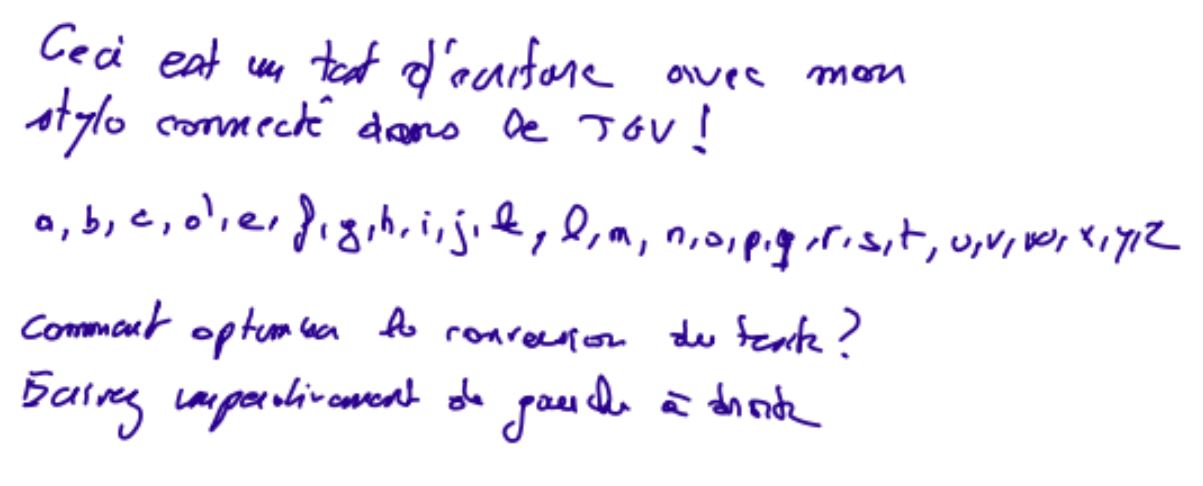 Ceci est un test d'écriture avec mon
stylo connecté dans le TGV !
a, b, c, d, e, f, g, h, i, j, k, l, m, n, o, p, q, r, s, t, u, v, w, x, y, z
Comment optimiser la conversion du texte ?
Ecrivez impérativement de gauche à droite